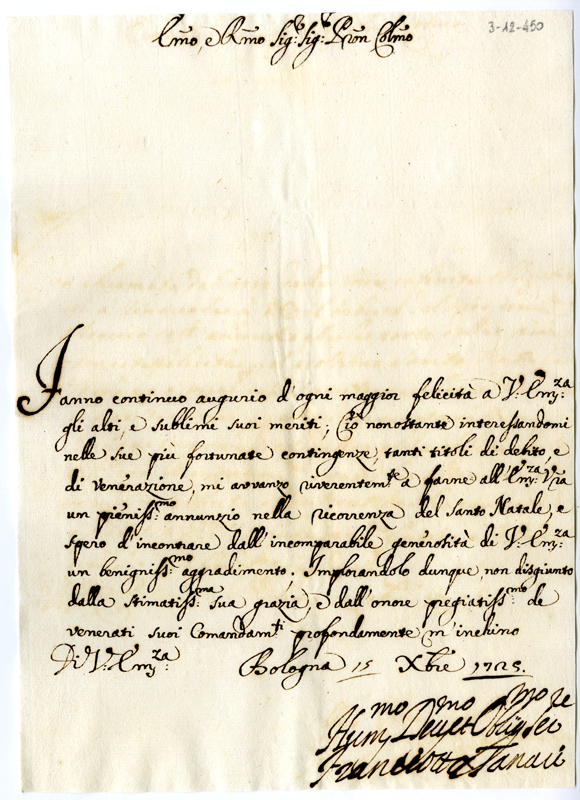 3-12-450
Emo, e Rmo Sig.r Sig.r Pron Colmo
Fanno continuo augurio d'ogni maggior felicità a V: Em:za
gli alti, e sublimi suoi meriti; Ciò nonostante interessandomi
nelle sue più fortunate contingenze, tanti titoli di debito, e
di venerazione, mi avvanzo riverentem:te à farne all'Em:za Vra
un pieniss:mo annunzio nella ricorrenza del Santo Natale, e
spero d'incontrare dall'incomparabile generosità di V: Em:za
un benigniss:mo aggradimento. Implorandolo dunque, non disgiunto
dalla stimatiss:ma sua grazia, e dall'onore pregiatiss:mo de
venerati suoi Comandam:ti profondamente m'inchino
Di V: Em:za Bologna 15 Xbre 1725.
Hum:mo Dev:mo et Oblig:mo Se:re
Franciotto Tanari